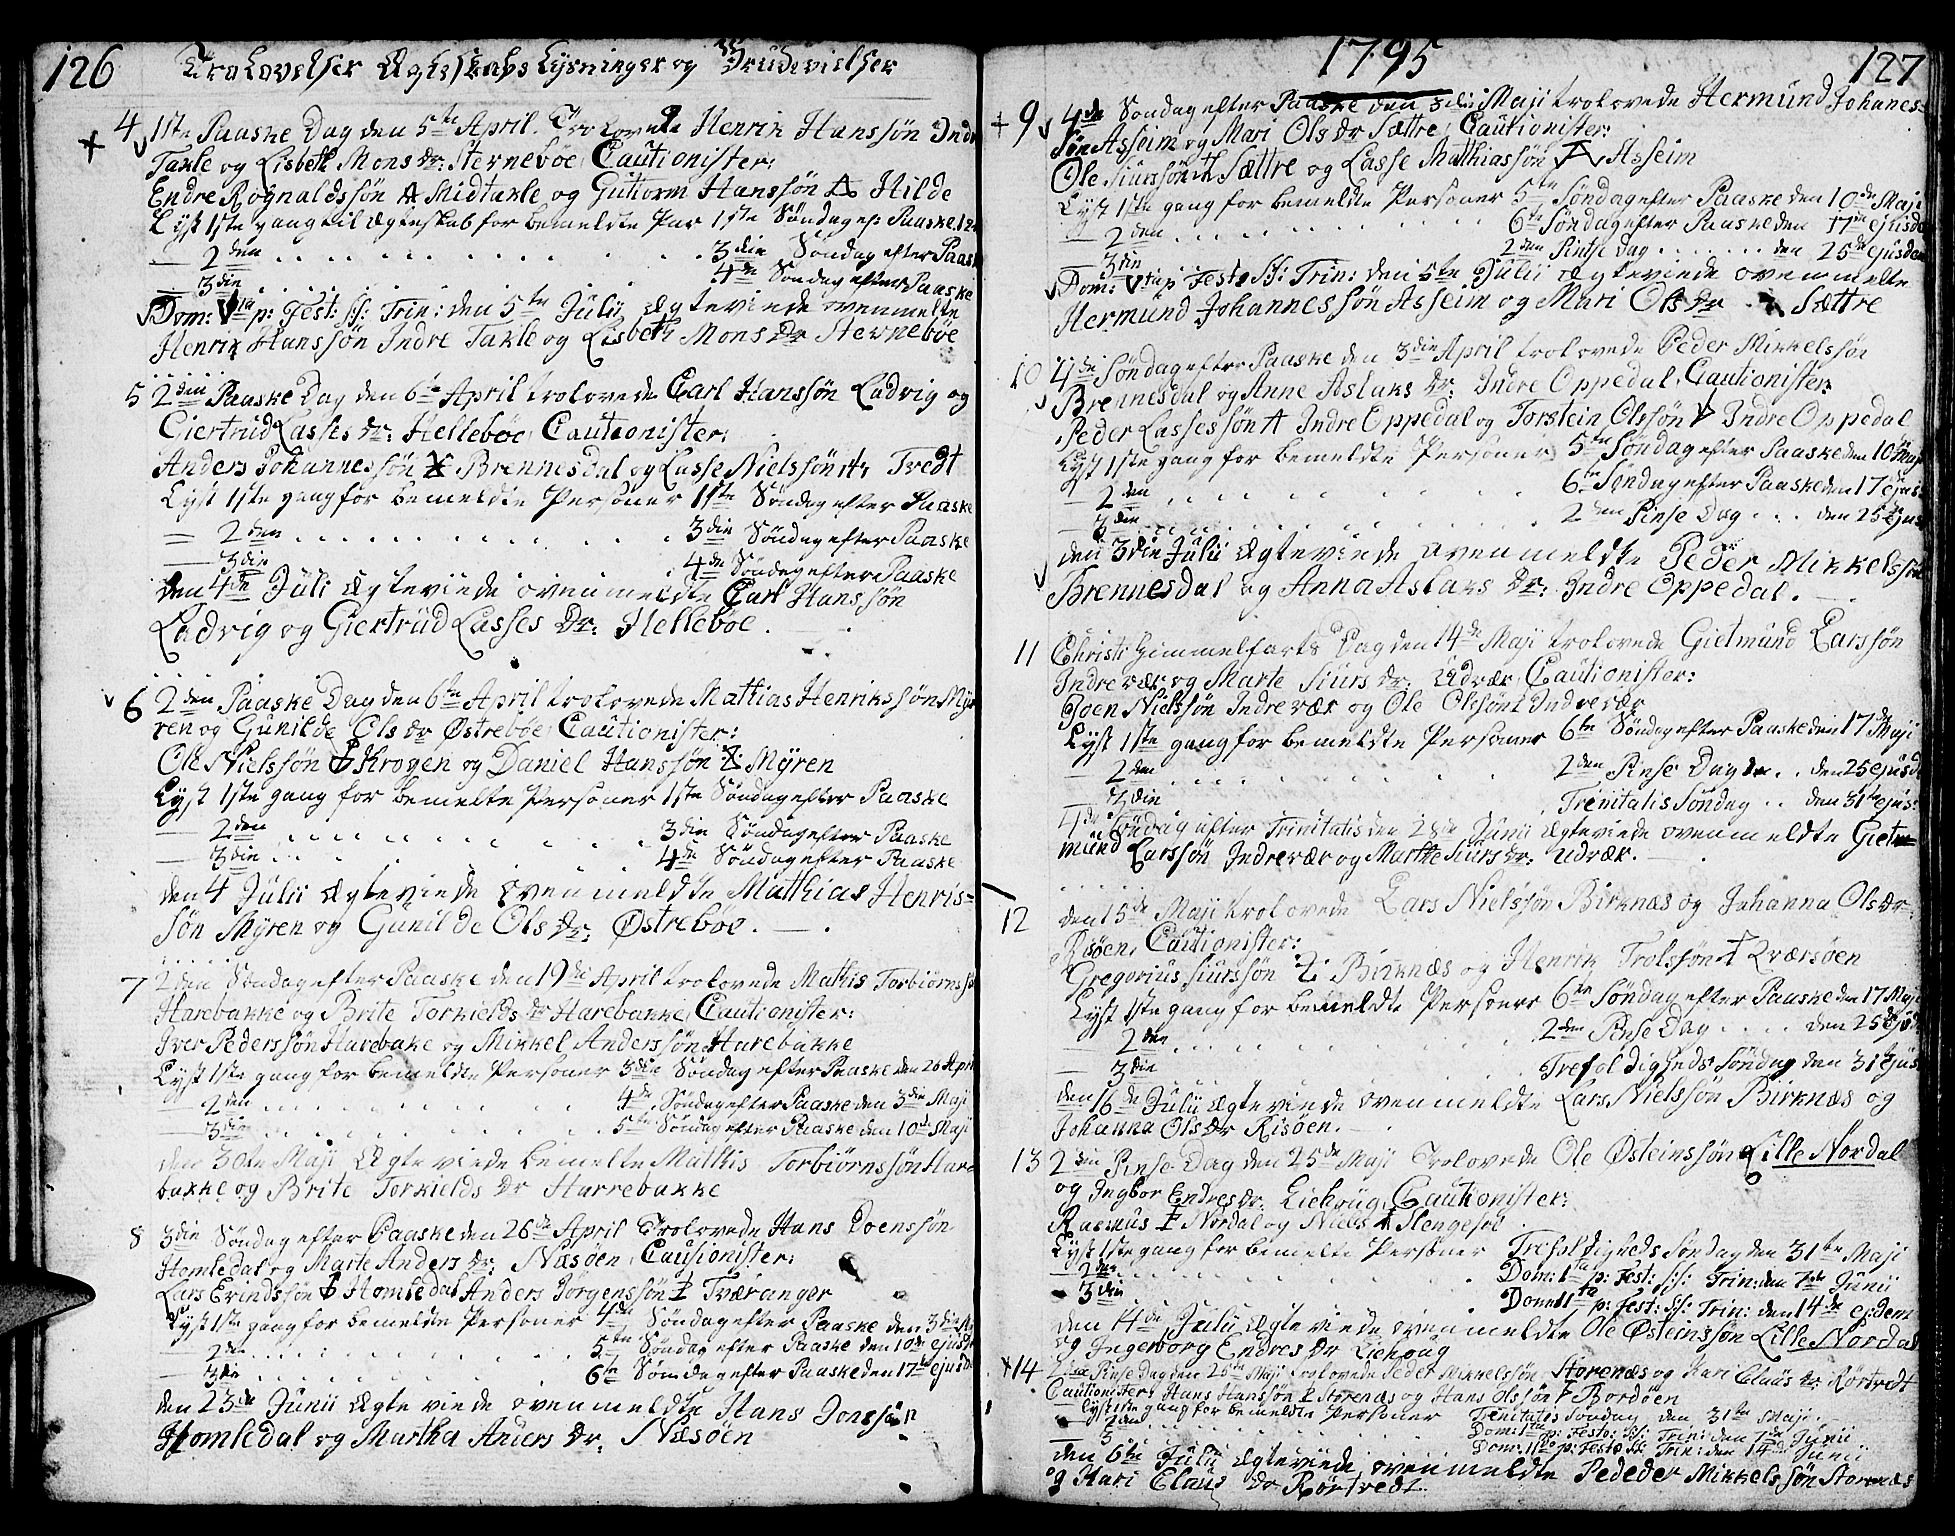 126 Trolovelser Ægteskabs Lysninger og Brudevielser
4 1ste Paaske Dag den 5te April. Trolovede Henrik Hanssøn Indre
Takle og Lisbeth Mons Dr: Sternebøe, Cautionister:
Endre Rognaldssøn Midtakle og Guttorm Hanssøn Hilde
Lyst 1ste gang til Ægteskab for bemeldte Par 1ste Søndag ep: Paaske. 12
— 2den . . . . . . . . . . . . 3die Søndag efter Paask
— 3die . . . . . . . . . . . . 4de Søndag efter Paaske
Dom: Vta p: Fest: SS: Trin: den 5te Julii Ægteviede ovenmelte
Henrik Hanssøn Indre Takle og Lisbeth Mons Dr Sternebøe
5 2den Paaske Dag den 6te April trolovede Carl Hanssøn Ladvig og
Giertrud Lasses Dr: Hellebøe, Cautionister:
Anders Johannessøn Brennesdal og Lasse Nielssøn Tredt
Lyst 1ste gang for bemeldte Personer 1ste Søndag efter Paaske
— 2den . . . . . . . . . . . . 3die Søndag efter Paaske
— 3die . . . . . . . . . . . . 4de Søndag efter Paaske
den 4de Juli Ægteviede ovenmeldte Carl Hanssøn
Ladvig og Giertrud Lasses Dr: Hellebøe. —.
6 2den Paaske Dag den 6te April trolovede Mathias Henrikssøn Myr
ren og Gunilde Ols Dr Østrebøe, Cautionister:
Ole Nielssøn Krogen og Daniel Hanssøn Myren
Lyst 1ste gang for bemelte Personer 1ste Søndag efter Paaske
— 2den . . . . . . . . . . . . 3die Søndag efter Paaske
— 3die . . . . . . . . . . . . 4de Søndag efter Paaske
den 4 Julii Ægteviede ovenmeldte Matthias Henris=
søn Myren og Gunilde Ols Dr: Østrebøe. —.
7 2den Søndag efter Paaske den 19de April trolovede Mathis Torbiørnss
Harebakke og Brite Torkields Dr Harebakke, Cautionister:
Iver Pederssøn Harebake og Mikkel Anderssøn Harebakke
Lyst 1ste gang for bemeldte Personer 3die Søndag efter Paaske den 26 Apr
— 2den . . . . . . . . . . 4de Søndag efter Paaske den 3die Maji
— 3die . . . . . . . . . . 5te Søndag efter Paaske den 10de Maji
den 30te Maji Ægteviede bemelte Mathis Torbiørnssøn Har
bakke og Brite Torkields Dr Harrebakke
8 3die Søndag efter Paaske den 26de April Trolovede Hans Joenssøn
Homledal og Marte Anders Dr: Næsøen, Cautionister:
Lars Erindssøn Homledal Anders Jørgenssøn Tværanger
Lyst 1ste gang for bemeldte Personer 4de Søndag efter Paaske den 3die
— 2den . . . . . . . . . . 5te Søndag efter Paaske den 10de ejusd
— 3die . . . . . . . . . . 6te Søndag efter Paaske den 17de ejusd
den 23de Junii Ægteviede ovenmeldte Hans Jonssøn
Homledal og Martha Anders Dr: Næsøen
1795 127
9 4de Søndag efter Paaske den 3die Maji trolovede Hermund Johanes=
søn Asseim og Mari Ols Dr Sættre, Cautionister:
Ole Siurssøn Sættre og Lasse Matthiassøn Asseim
Lyst 1ste gang for bemeldte Personer 5te Søndag efter Paaske den 10de Maji
— 2den . . . . . . . . . . 6te Søndag efter Paaske den 17de ejusd
— 3die . . . . . . . . . . 2den Pintse dag . . . . . . den 25de ejusdem
Dom: Vta p Festo SS: Trin: den 5te Julii Ægteviede ovenmelte
Hermund Johannessøn Asseim og Mari Ols Dr Sættre
10 4de Søndag efter Paaske den 3die April trolovede Peder Mikkelssøn
Brennesdal og Anne Aslaks Dr: Indre Oppedal, Cautionister:
Peder Lassessøn Indre Oppedal og Torstein Olssøn Indre Oppedal
Lyst 1ste gang for bemeldte Personer 5te Søndag efter Paaske den 10de Maji
— 2den . . . . . . . . . . 6te Søndag efter Paaske den 17 ejus
— 3die . . . . . . . . . . 2den Pinse Dag . . . den 25de ejus
den 3die Julii Ægteviede ovenmeldte Peder Mikkelssøn
Brennesdal og Anna Aslaks Dr: Indre Oppedal. —
11 Christi Himmelfarts Dag den 14de Maji trolovede Gietmund Larssøn
Indrevær og Marte Siurs Dr: Udvær, Cautionister:
Joen Nielssøn Indrevær og Ole Olssøn Indrevær
Lyst 1ste gang for bemeldte Personer 6te Søndag efter Paaske den 17de Maji
— 2den . . . . . . . . . . 2den Pinse Dag . . den 25 ejusd
— 3die . . . . . . . . . . Trinitatis Søndag . . den 31te ejus:
4de Søndag efter Trinitatis den 28de Junii Ægteviede ovenmeldte Giet=
mund Larssøn Indrevær og Marthe Siurs Dr: Udvær. —
12 den 15de Maji trolovede Lars Nielssøn Birknæs og Johanna Ols Dr
Risøen, Cautionister:
Gregorius Siurssøn Birknæs og Henrik Trolssøn Kværsøen
Lyst 1ste gang for bemeldte Personer 6te Søndag efter Paaske den 17 Maji
— 2den . . . . . . . . . . 2den Pinse Dag . . . . den 25de ejus
— 3die . . . . . . . . . . Trefoldigheds Søndag den 31te ejus
den 16de Julii Ægteviede ovenmeldte Lars Nielssøn Birknæs og
Johanna Ols Dr Risøen. —.
13 2den Pinse Dag den 25de Maji Trolovede Ole Østeinssøn Lille Nordal
og Ingbor Endres Dr. Liehoug, Cautionister:
Rasmus Nordal og Niels Slengesol
Lyst 1ste gang for bemelte Personer Trefoldigheds Søndag den 31te Maji
— 2den . . . . . . . . . . Dom: 1ta p: Fest: SS: Trin: den 7de Junii
— 3die . . . . . . . . . . Dom: 11ta p: Fest: SS: Trin: den 14de ejdem
den 14de Julii Ægteviede ovenmeldte Ole Østeinssøn Lille Nordal
og Ingeborg Endres Dr Liehoug
14 2den Pinse Dag den 25te Maji trolovede Peder Mikkelssøn Storenæs og Kari Claus Dr: Rørtvedt
Cautionister, Hans Hanssøn Storenæs og Hans Olssøn Bordøen
Lyst 1ste gang for bemeldte Personer Trinitatis Søndag den 31te Maji
— 2den . . . . . . . . . . Dom: 1ta p: Festo: SS: Trin: den 7de Junii
— 3 . . . . . . . . . . Dom: 11ta p: Festo SS: Trin: den 14de Junii
den 6te Julii Ægteviede ovenmeldte Pededer Mikkelssøn Storenæs
og Kari Claus Dr Rørtvedt.